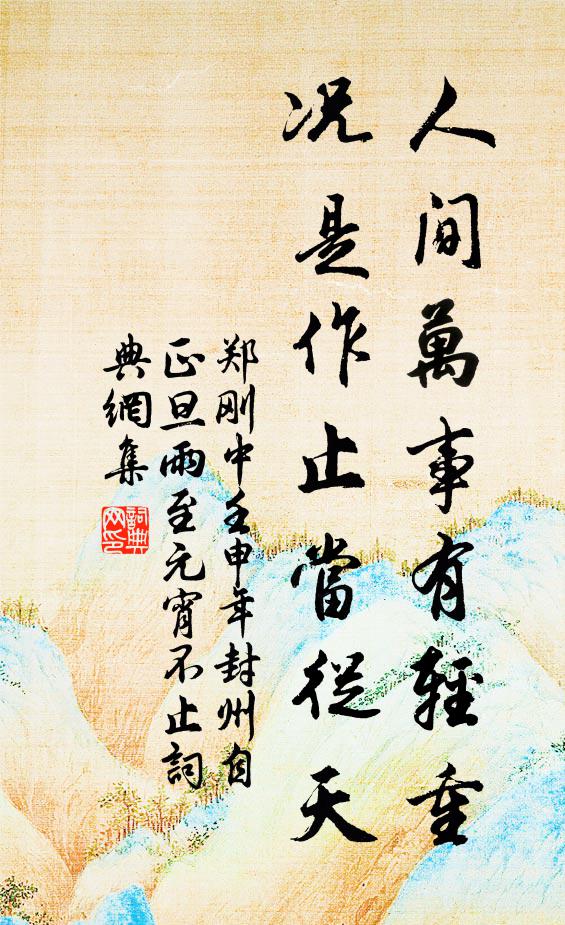 人間萬事有輕重
况是作止當從天
郑刚中壬申年封州自
正旦雨至元宵不止詞
典網集
詞典
网印